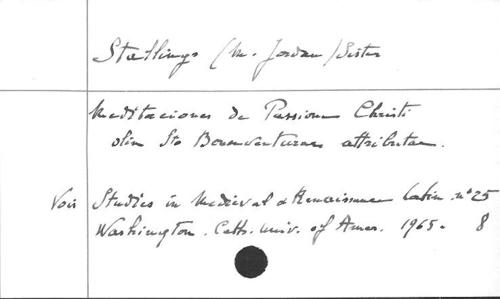 Stallings (M. Jordan) Sister
Meditaciones de Passione Christi
olim Sto Bonaventurae attributae.
Voir Studies in Medieval & Renaissance Latin. n° 25
Washington. Cath. Univ. of Amer. 1965. 8